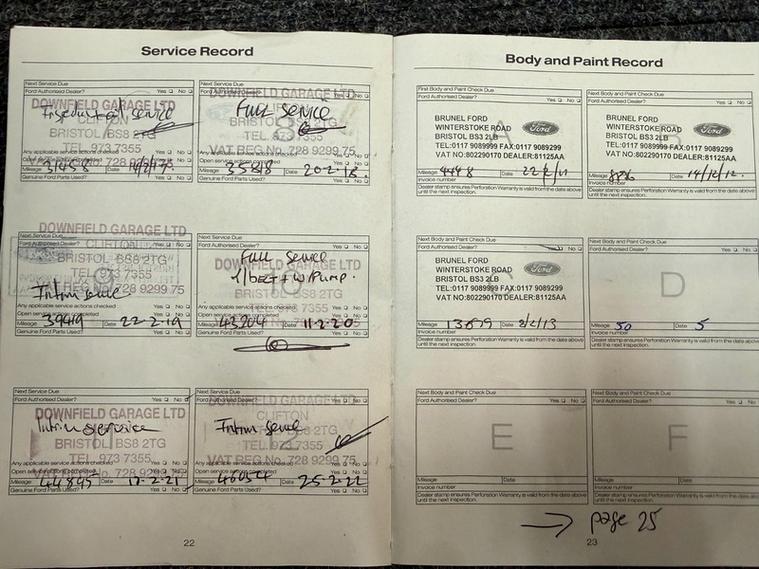 Service Record
Next Service Due
Ford Authorised Dealer? Yes No
DOWNFIELD GARAGE LTD
service
CLIFTON
BRISTOL BS8
TEL. 973 7355
VAT REG No. 728 9299 75
Any applicable service actions checked Yes No
Open service actions completed Yes No
Mileage 31458 Date 14/2/17
Genuine Ford Parts Used? Yes No
Next Service Due
Ford Authorised Dealer? Yes No
DOWNFIELD GARAGE LTD
Full Service
CLIFTON
BRISTOL BS8
TEL. 973 7355
VAT REG No. 728 9299 75
Any applicable service actions checked Yes No
Open service actions completed Yes No
Mileage 35818 Date 20-2-18
Genuine Ford Parts Used? Yes No
Next Service Due
DOWNFIELD GARAGE LTD
Ford Authorised Dealer? Yes No
CLIFTON
BRISTOL BS8 2TG
TEL. 973 7355
VAT REG No. 728 9299 75
Intrim Service
Any applicable service actions checked Yes No
Open service actions completed Yes No
Mileage 39419 Date 22-2-19
Genuine Ford Parts Used? Yes No
Next Service Due
Ford Authorised Dealer? Yes No
Full Service
DOWNFIELD GARAGE LTD
T/BELT + W/PUMP.
BRISTOL BS8 2TG
TEL. 973 7355
Any applicable service actions checked Yes No
Open service actions completed Yes No
Mileage 43204 Date 11-2-20
Genuine Ford Parts Used? Yes No
Next Service Due
Ford Authorised Dealer? Yes No
DOWNFIELD GARAGE LTD
Intrim service
BRISTOL BS8 2TG
TEL. 973 7355
Any applicable service actions checked Yes No
Open service actions completed Yes No
VAT REG No. 728 9299 75
Mileage 44845 Date 17-2-21
Genuine Ford Parts Used? Yes No
Next Service Due
Ford Authorised Dealer? Yes No
DOWNFIELD GARAGE LTD
CLIFTON
Intrim Service
BRISTOL BS8 2TG
TEL. 973 7355
Any applicable service actions checked Yes No
VAT REG No. 728 9299 75
Open service actions completed Yes No
Mileage 46054 Date 25-2-22
Genuine Ford Parts Used? Yes No
22
Body and Paint Record
First Body and Paint Check Due
Ford Authorised Dealer? Yes No
A
BRUNEL FORD
WINTERSTOKE ROAD Ford
BRISTOL BS3 2LB
TEL:0117 9089999 FAX:0117 9089299
VAT NO:802290170 DEALER:81125AA
Mileage 4448 Date 22/2/11
Invoice number
Dealer stamp ensures Perforation Warranty is valid from the date above
until the next inspection.
Next Body and Paint Check Due
Ford Authorised Dealer? Yes No
BRUNEL FORD
WINTERSTOKE ROAD Ford
BRISTOL BS3 2LB
TEL:0117 9089999 FAX:0117 9089299
VAT NO:802290170 DEALER:81125AA
Mileage Date 14/12/12
Invoice number
Dealer stamp ensures Perforation Warranty is valid from the date above
until the next inspection.
Next Body and Paint Check Due
Ford Authorised Dealer? Yes No
BRUNEL FORD
WINTERSTOKE ROAD Ford
BRISTOL BS3 2LB
TEL:0117 9089999 FAX:0117 9089299
VAT NO:802290170 DEALER:81125AA
Mileage Date
Invoice number
Dealer stamp ensures Perforation Warranty is valid from the date above
until the next inspection.
Next Body and Paint Check Due
Ford Authorised Dealer? Yes No
D
Mileage 50 Date 5
Invoice number
Dealer stamp ensures Perforation Warranty is valid from the date above
until the next inspection.
Next Body and Paint Check Due
Ford Authorised Dealer? Yes No
E
Mileage Date
Invoice number
Dealer stamp ensures Perforation Warranty is valid from the date above
until the next inspection.
Next Body and Paint Check Due
Ford Authorised Dealer? Yes No
F
Mileage Date
Invoice number
Dealer stamp ensures Perforation Warranty is valid from the date above
until the next inspection.
→ page 25
23